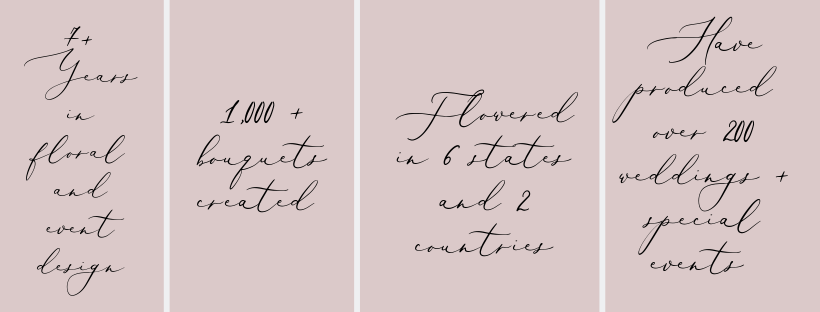 7+
Years
in
floral
and
event
design
1,000 +
bouquets
created
Flowered
in 6 states
and 2
countries
Have
produced
over 200
weddings +
special
events